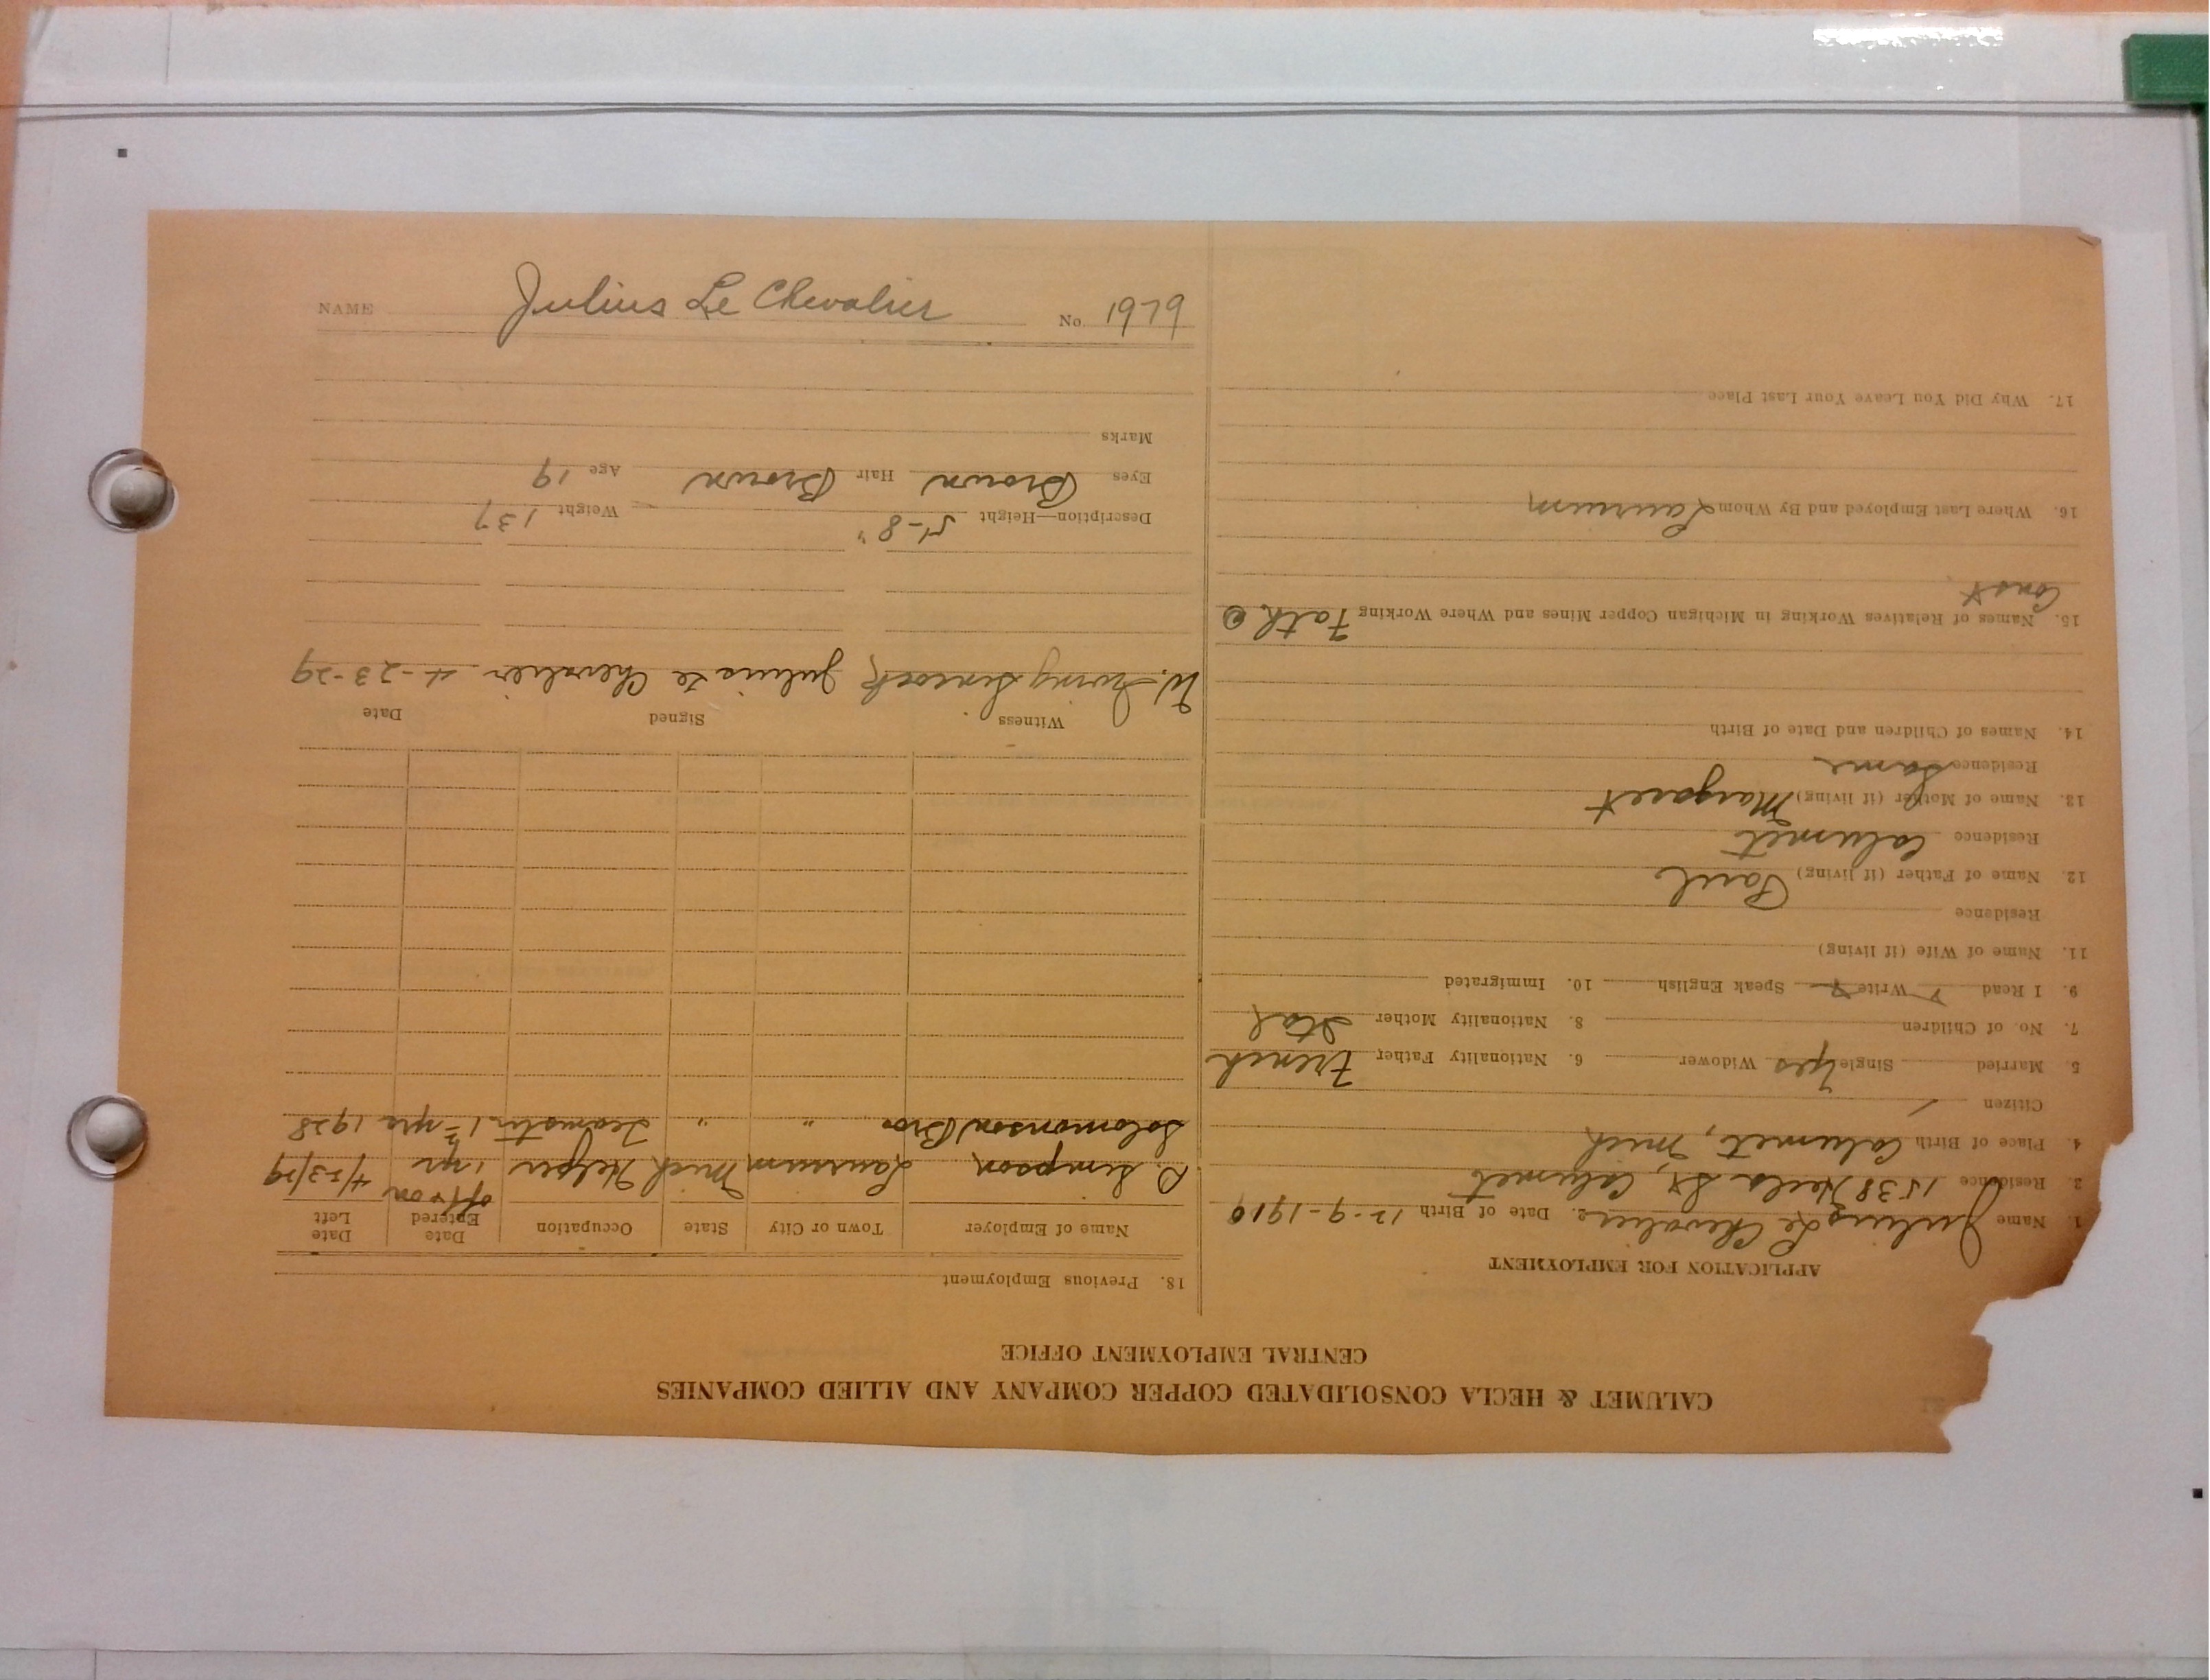 CALUMET & HECLA CONSOLIDATED COPPER COMPANY AND ALLIED COMPANIES
CENTRAL EMPLOYMENT OFFICE
APPLICATION FOR EMPLOYMENT
1. Name Julius Le Chevalier 2. Date of Birth 12-9-1910
3. Residence 1538 Hecla St, Calumet
4. Place of Birth Calumet, Mich
Citizen
5. Married Single Yes Widower 6. Nationality Father French
7. No. of Children 8. Nationality Mother Ital
9. I Read Write Speak English 10. Immigrated
11. Name of Wife (if living)
Residence
12. Name of Father (if living) Paul
Residence Calumet
13. Name of Mother (if living) Margaret
Residence Same
14. Names of Children and Date of Birth
15. Names of Relatives Working in Michigan Copper Mines and Where Working Fath @
Const
16. Where Last Employed and By Whom Laurium
17. Why Did You Leave Your Last Place
18. Previous Employment
Name of Employer Town or City State Occupation Date Entered Date Left
off & on
P. Simpson Laurium Mich Helper 1 yr 4/23/29
Solomonson Bros " " Teamster 1½ yrs 1928
Witness Signed Date
W. Irving Julius Le Chevalier 4-23-29
Description—Height 5'-8" Weight 137
Eyes Brown Hair Brown Age 19
Marks
NAME Julius Le Chevalier No. 1979